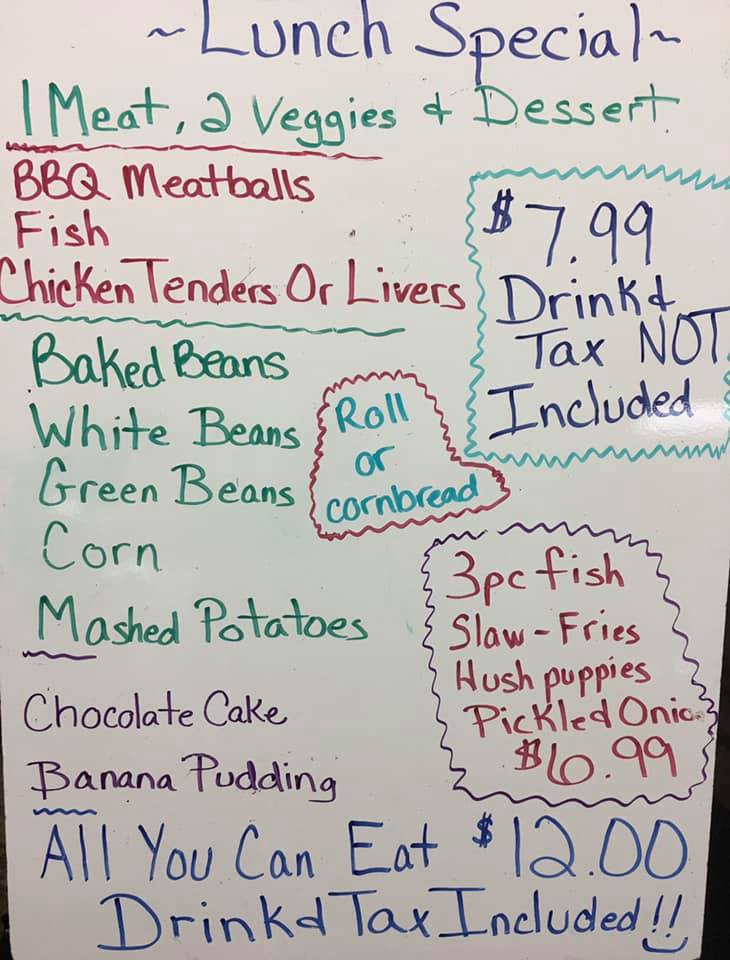 ~Lunch Special~
1 Meat, 2 Veggies & Dessert
BBQ Meatballs
Fish
Chicken Tenders Or Livers
$7.99
Drink &
Tax NOT
Included
Baked Beans
White Beans
Green Beans
Corn
Mashed Potatoes
Roll
or
cornbread
3pc fish
Slaw - Fries
Hush puppies
Pickled Onio
$6.99
Chocolate Cake
Banana Pudding
All You Can Eat $12.00
Drink & Tax Included!!